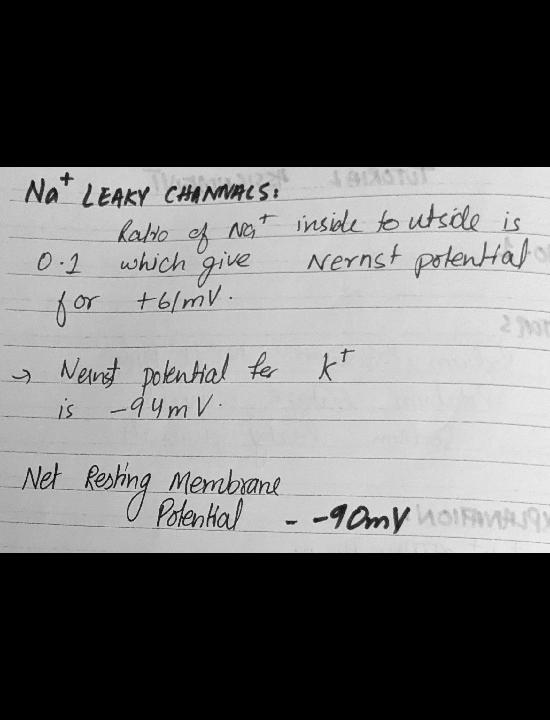 Na+ LEAKY CHANNALS:
Ratio of Na+ inside to utside is
0.1 which give Nernst potential
for +61mV.
→ Nernst potential fer K+
is -94mV.
Net Resting Membrane
Potential - -90mV